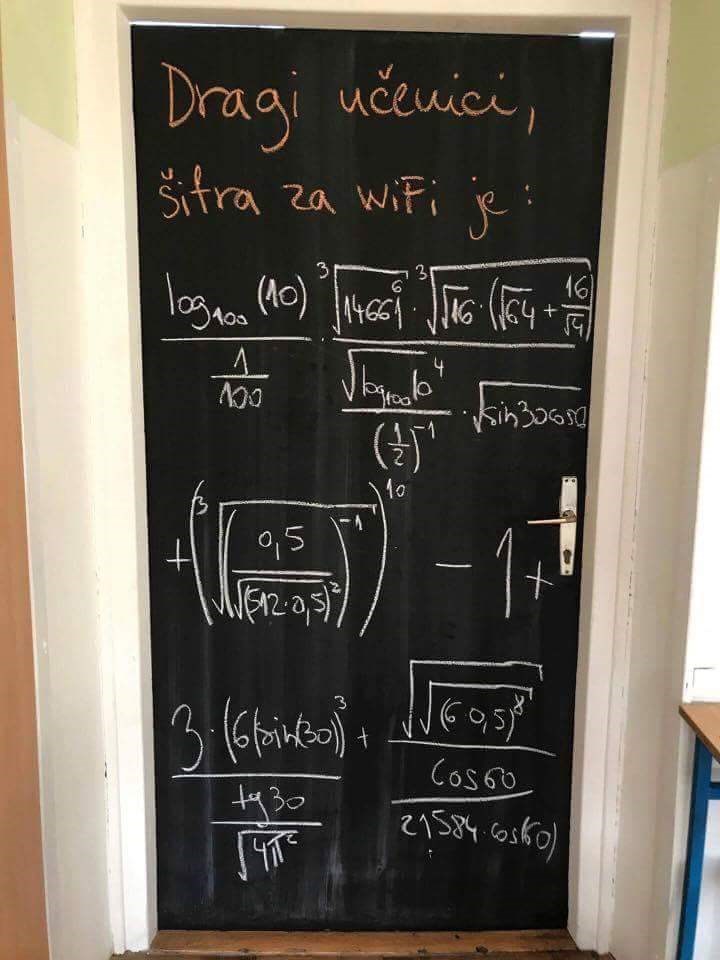 Dragi učenici,
šifra za WiFi je:
log₁₀₀(10) / (1/100) · (∛(14661⁶) · ∛(√16 · (√64 + 16/√4))) / (√(log₁₀₀10)⁴ / (1/2)⁻¹ · √(sin30cos60))
+ (∛(√((0,5 / √(512·0,5)²)⁻¹)))¹⁰ - 1 +
3·(6(sin(30))³ / (tg30 / √(4π²)) + √(√((6·0,5)⁸)) / (cos60 / (21584·cos(60)))